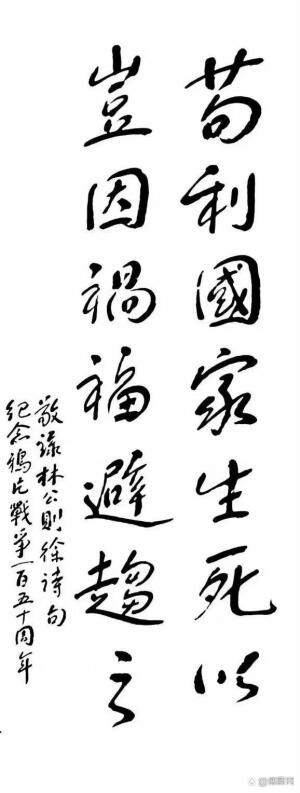 苟利國家生死以
豈因禍福避趨之
敬録林公則徐詩句
紀念鴉片戰争一百五十周年